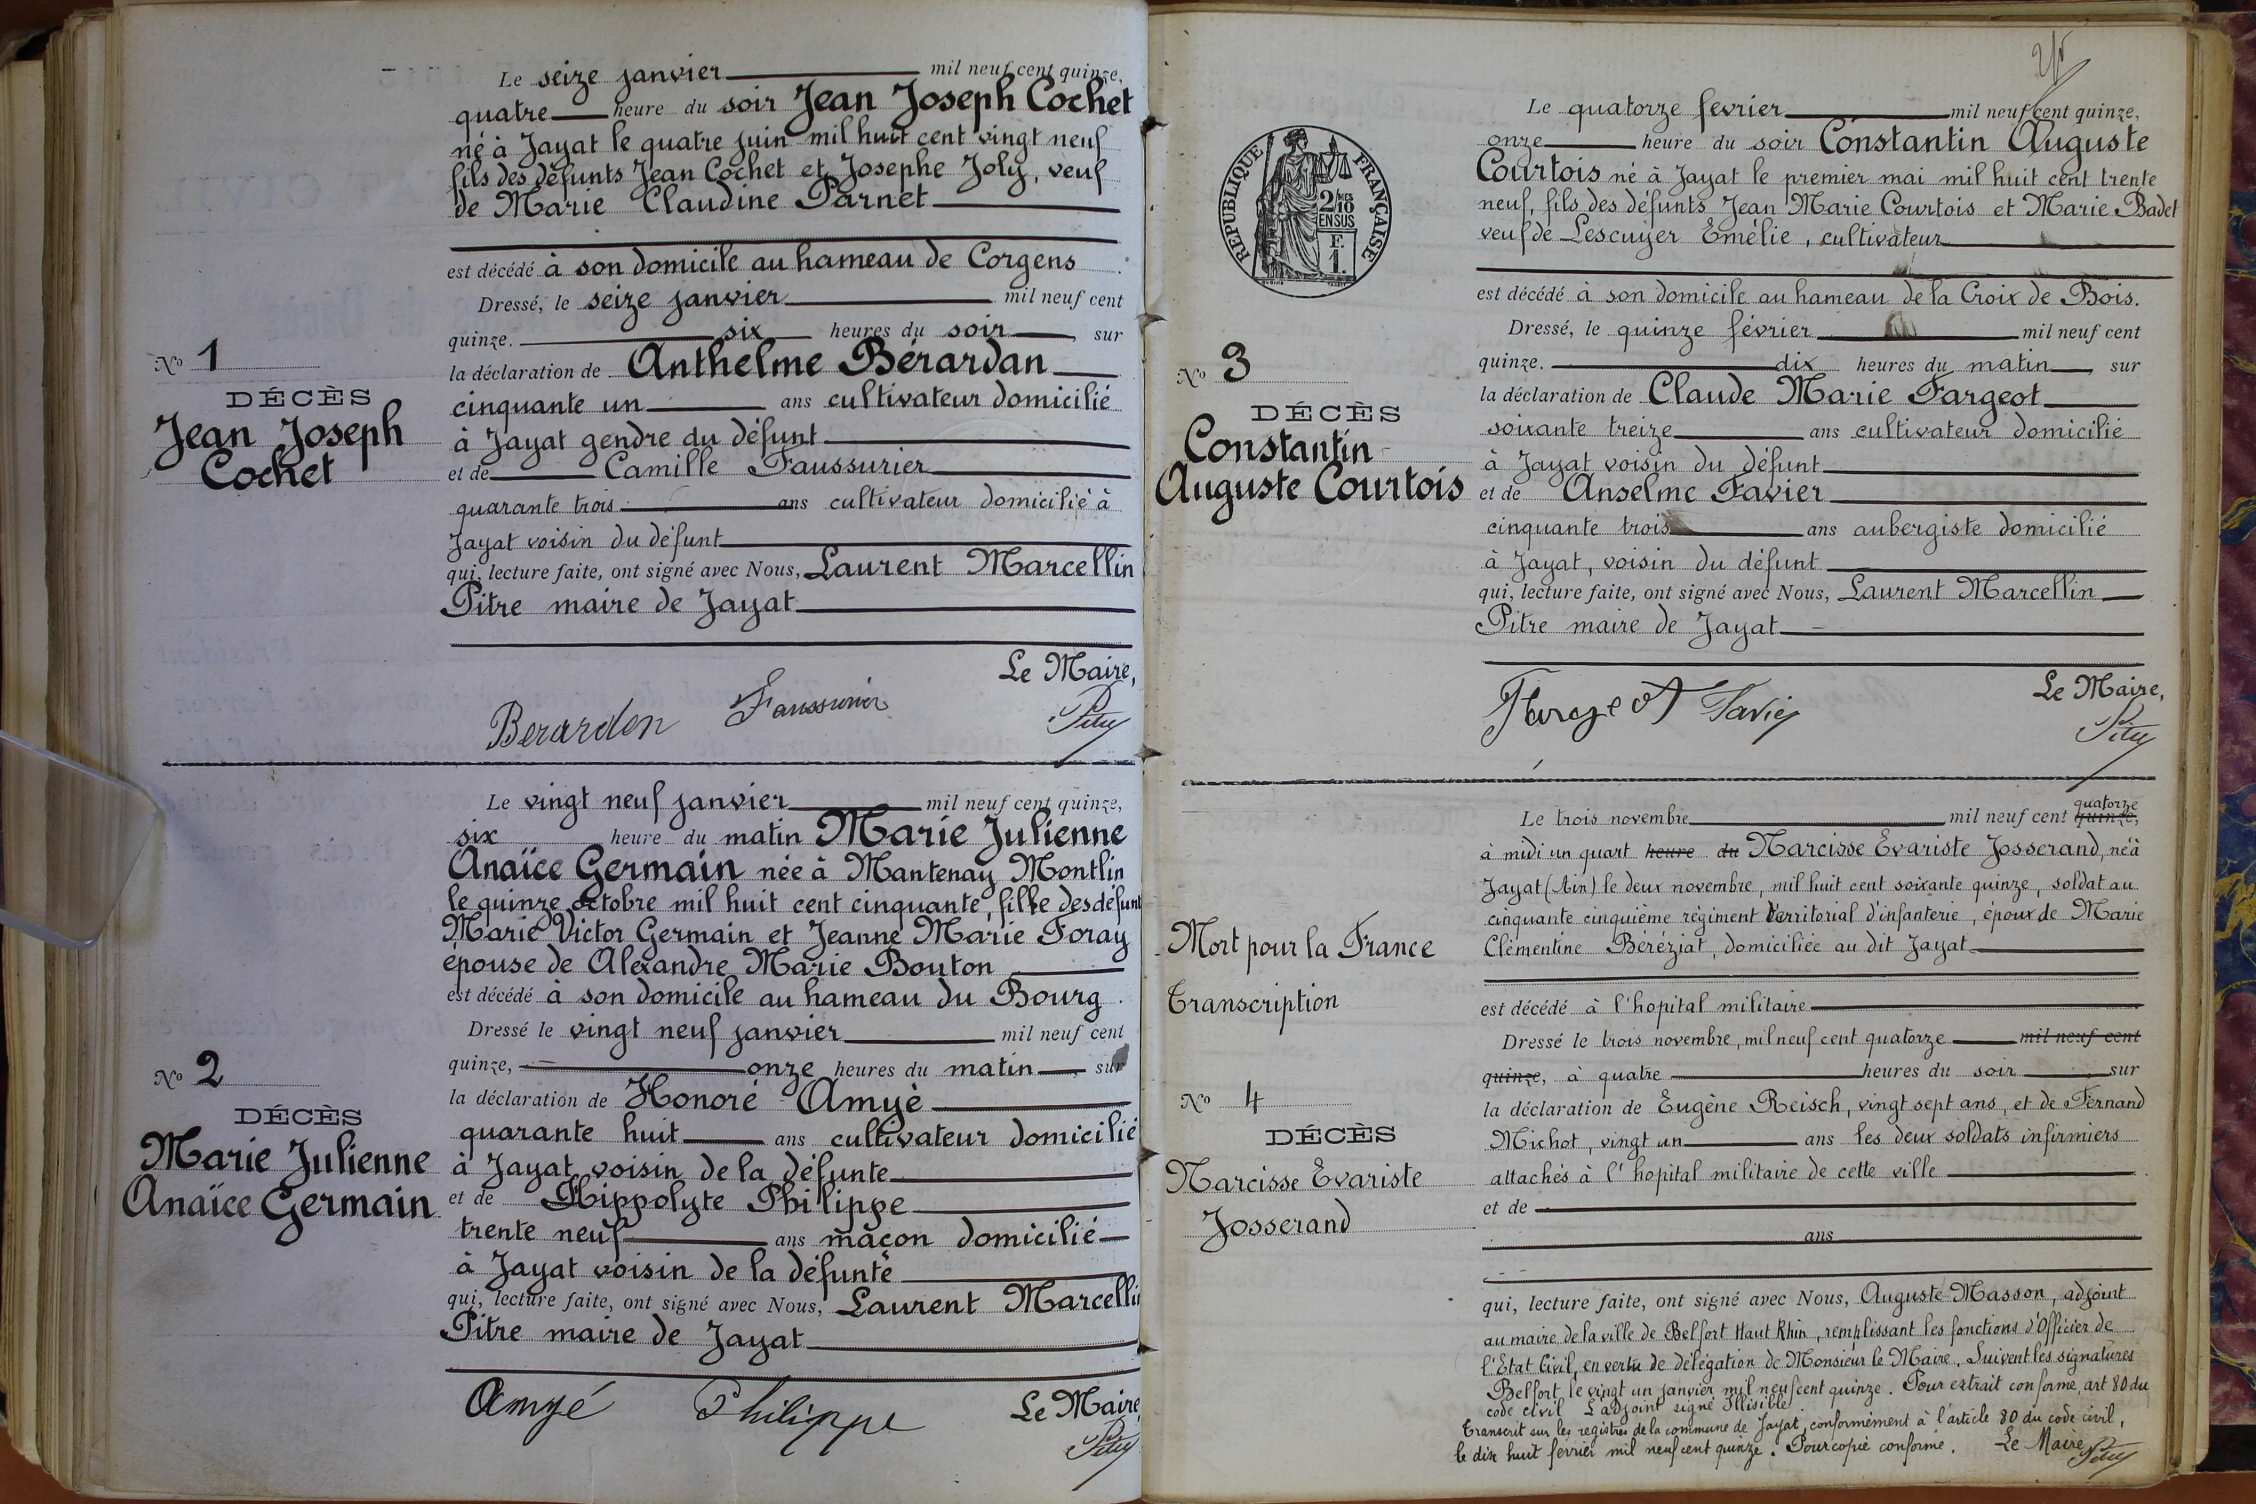 Le seize janvier mil neuf cent quinze,
quatre heure du soir Jean Joseph Cochet
né à Jayat le quatre juin mil huit cent vingt neuf
fils des défunts Jean Cochet et Josephe Joly, veuf
de Marie Claudine Parnet
est décédé à son domicile au hameau de Corgens
Dressé, le seize janvier mil neuf cent
quinze. six heures du soir, sur
la déclaration de Anthelme Bérardan
cinquante un ans cultivateur domicilié
à Jayat gendre du défunt
et de Camille Faussurier
quarante trois ans cultivateur domicilié à
Jayat voisin du défunt
qui, lecture faite, ont signé avec Nous, Laurent Marcellin
Pitre maire de Jayat
Le Maire,
Berardan Faussurier Pitre
No 1
DÉCÈS
Jean Joseph
Cochet
Le vingt neuf janvier mil neuf cent quinze,
six heure du matin Marie Julienne
Anaïce Germain née à Mantenay Montlin
le quinze octobre mil huit cent cinquante, fille des défunt
Marie Victor Germain et Jeanne Marie Foray
épouse de Alexandre Marie Bouton
est décédé à son domicile au hameau du Bourg.
Dressé le vingt neuf janvier mil neuf cent
quinze, onze heures du matin, sur
la déclaration de Honoré Amyè
quarante huit ans cultivateur domicilié
à Jayat voisin de la défunte
et de Hippolyte Philippe
trente neuf ans maçon domicilié
à Jayat voisin de la défunte
qui, lecture faite, ont signé avec Nous, Laurent Marcellin
Pitre maire de Jayat
Amyé Philippe Le Maire
Pitre
No 2
DÉCÈS
Marie Julienne
Anaïce Germain
Le quatorze fevrier mil neuf cent quinze,
onze heure du soir Constantin Auguste
Courtois né à Jayat le premier mai mil huit cent trente
neuf, fils des défunts Jean Marie Courtois et Marie Badet
veuf de Lescuyer Emélie, cultivateur
est décédé à son domicile au hameau de la Croix de Bois.
Dressé, le quinze février mil neuf cent
quinze. dix heures du matin, sur
la déclaration de Claude Marie Fargeot
soixante treize ans cultivateur domicilié
à Jayat voisin du défunt
et de Anselme Favier
cinquante trois ans aubergiste domicilié
à Jayat, voisin du défunt
qui, lecture faite, ont signé avec Nous, Laurent Marcellin
Pitre maire de Jayat
Le Maire,
Fargeot Favier Pitre
RÉPUBLIQUE FRANÇAISE
2/10 EN SUS
F.
1.
No 3
DÉCÈS
Constantin
Auguste Courtois
Le trois novembre mil neuf cent quinze, quatorze
à midi un quart heure du Narcisse Evariste Josserand, né à
Jayat (Ain) le deux novembre, mil huit cent soixante quinze, soldat au
cinquante cinquième régiment Territorial d'infanterie, époux de Marie
Clémentine Béréziat, domiciliée au dit Jayat
est décédé à l'hopital militaire
Dressé le trois novembre, mil neuf cent quatorze mil neuf cent
quinze, à quatre heures du soir, sur
la déclaration de Eugène Reisch, vingt sept ans, et de Fernand
Michot, vingt un ans les deux soldats infirmiers
attachés à l'hopital militaire de cette ville
et de
ans
qui, lecture faite, ont signé avec Nous, Auguste Masson, adjoint
au maire de la ville de Belfort Haut Rhin, remplissant les fonctions d'Officier de
l'Etat Civil, en vertu de délégation de Monsieur le Maire. Suivent les signatures
Belfort le vingt un janvier mil neuf cent quinze. Pour extrait conforme, art 80 du
code civil L'adjoint signé Illisible.
Transcrit sur les registres de la commune de Jayat, conformément à l'article 80 du code civil,
le dix huit février mil neuf cent quinze. Pour copie conforme. Le Maire
Pitre
Mort pour la France
Transcription
No 4
DÉCÈS
Narcisse Evariste
Josserand